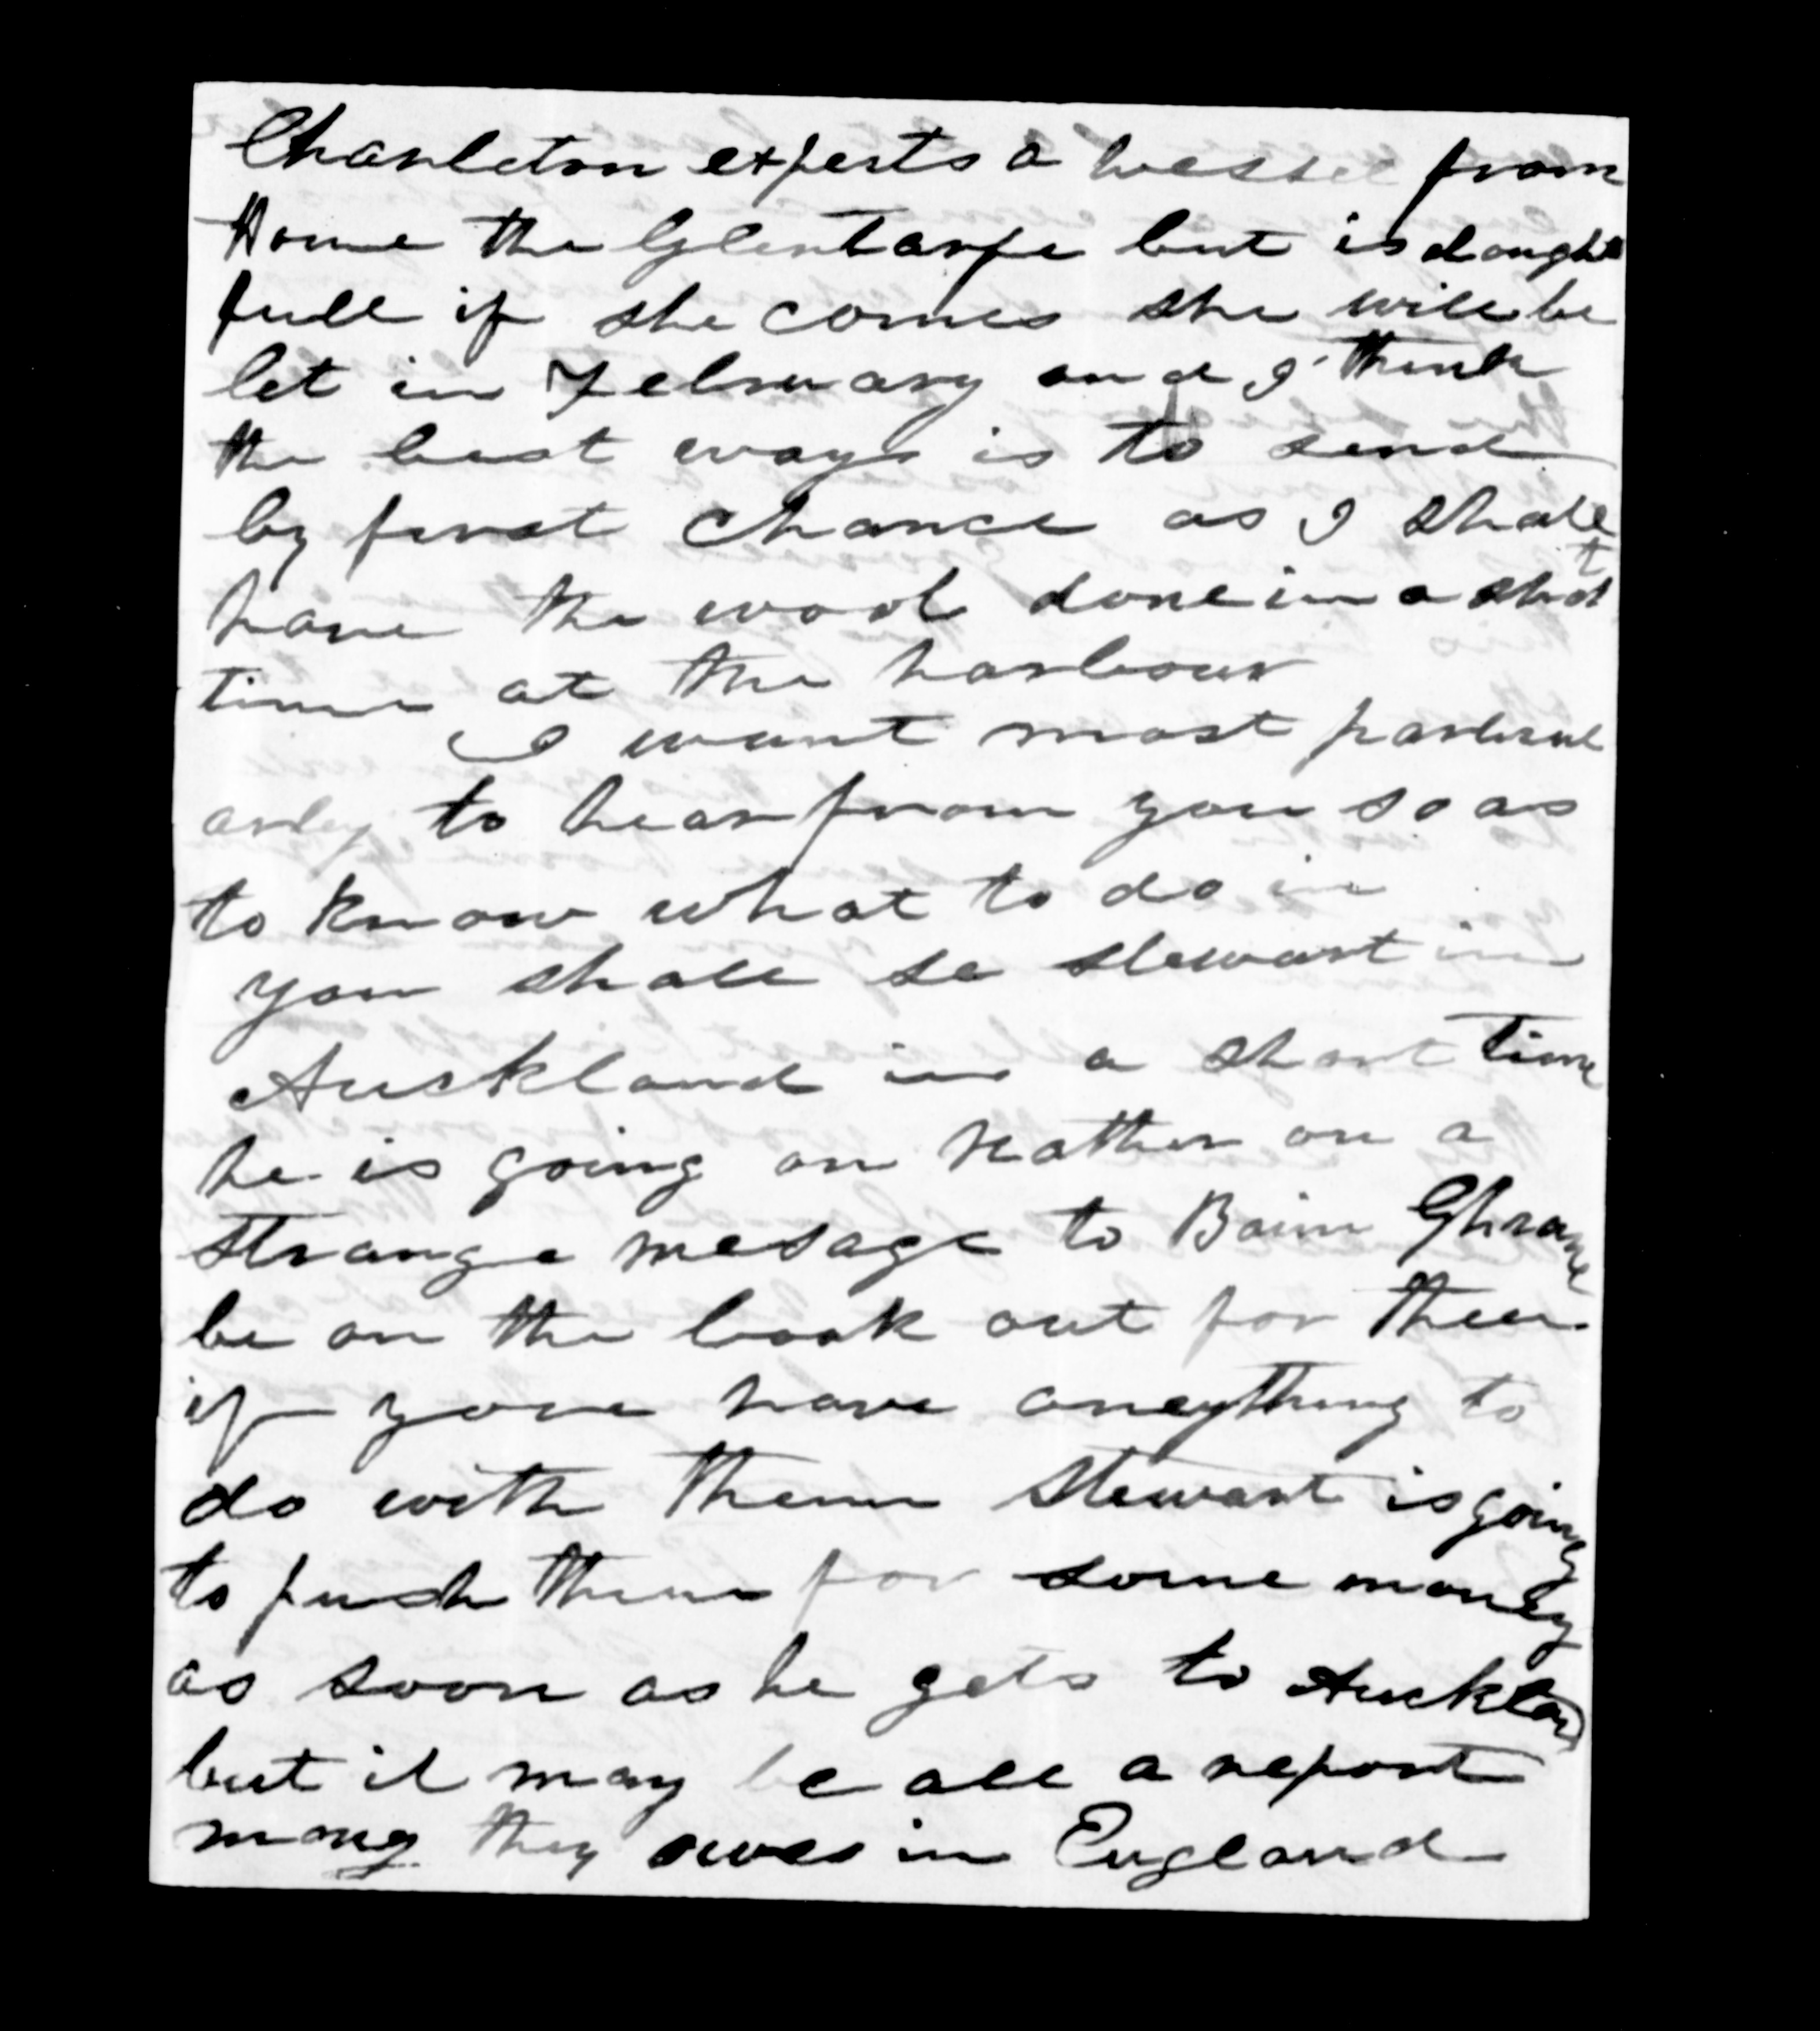 Charleton expects a vessel from
Home the Glentarpe but is dought
full if she comes she will be
let in February and I think
the best ways is to send
by first chance as I shall
have the wool done in a short
time at the harbour
I want most particul
arley to hear from you so as
to know what to do in
you shall se stewart in
Auckland in a short time
he is going on Rather on a
strange mesage to Bain Ghrame
be on the look out for them
if youe have aneything to
do with them Stewart is going
to push them for some money
as soon as he gets to Auckland
but it may be all a report
mony they owes in England